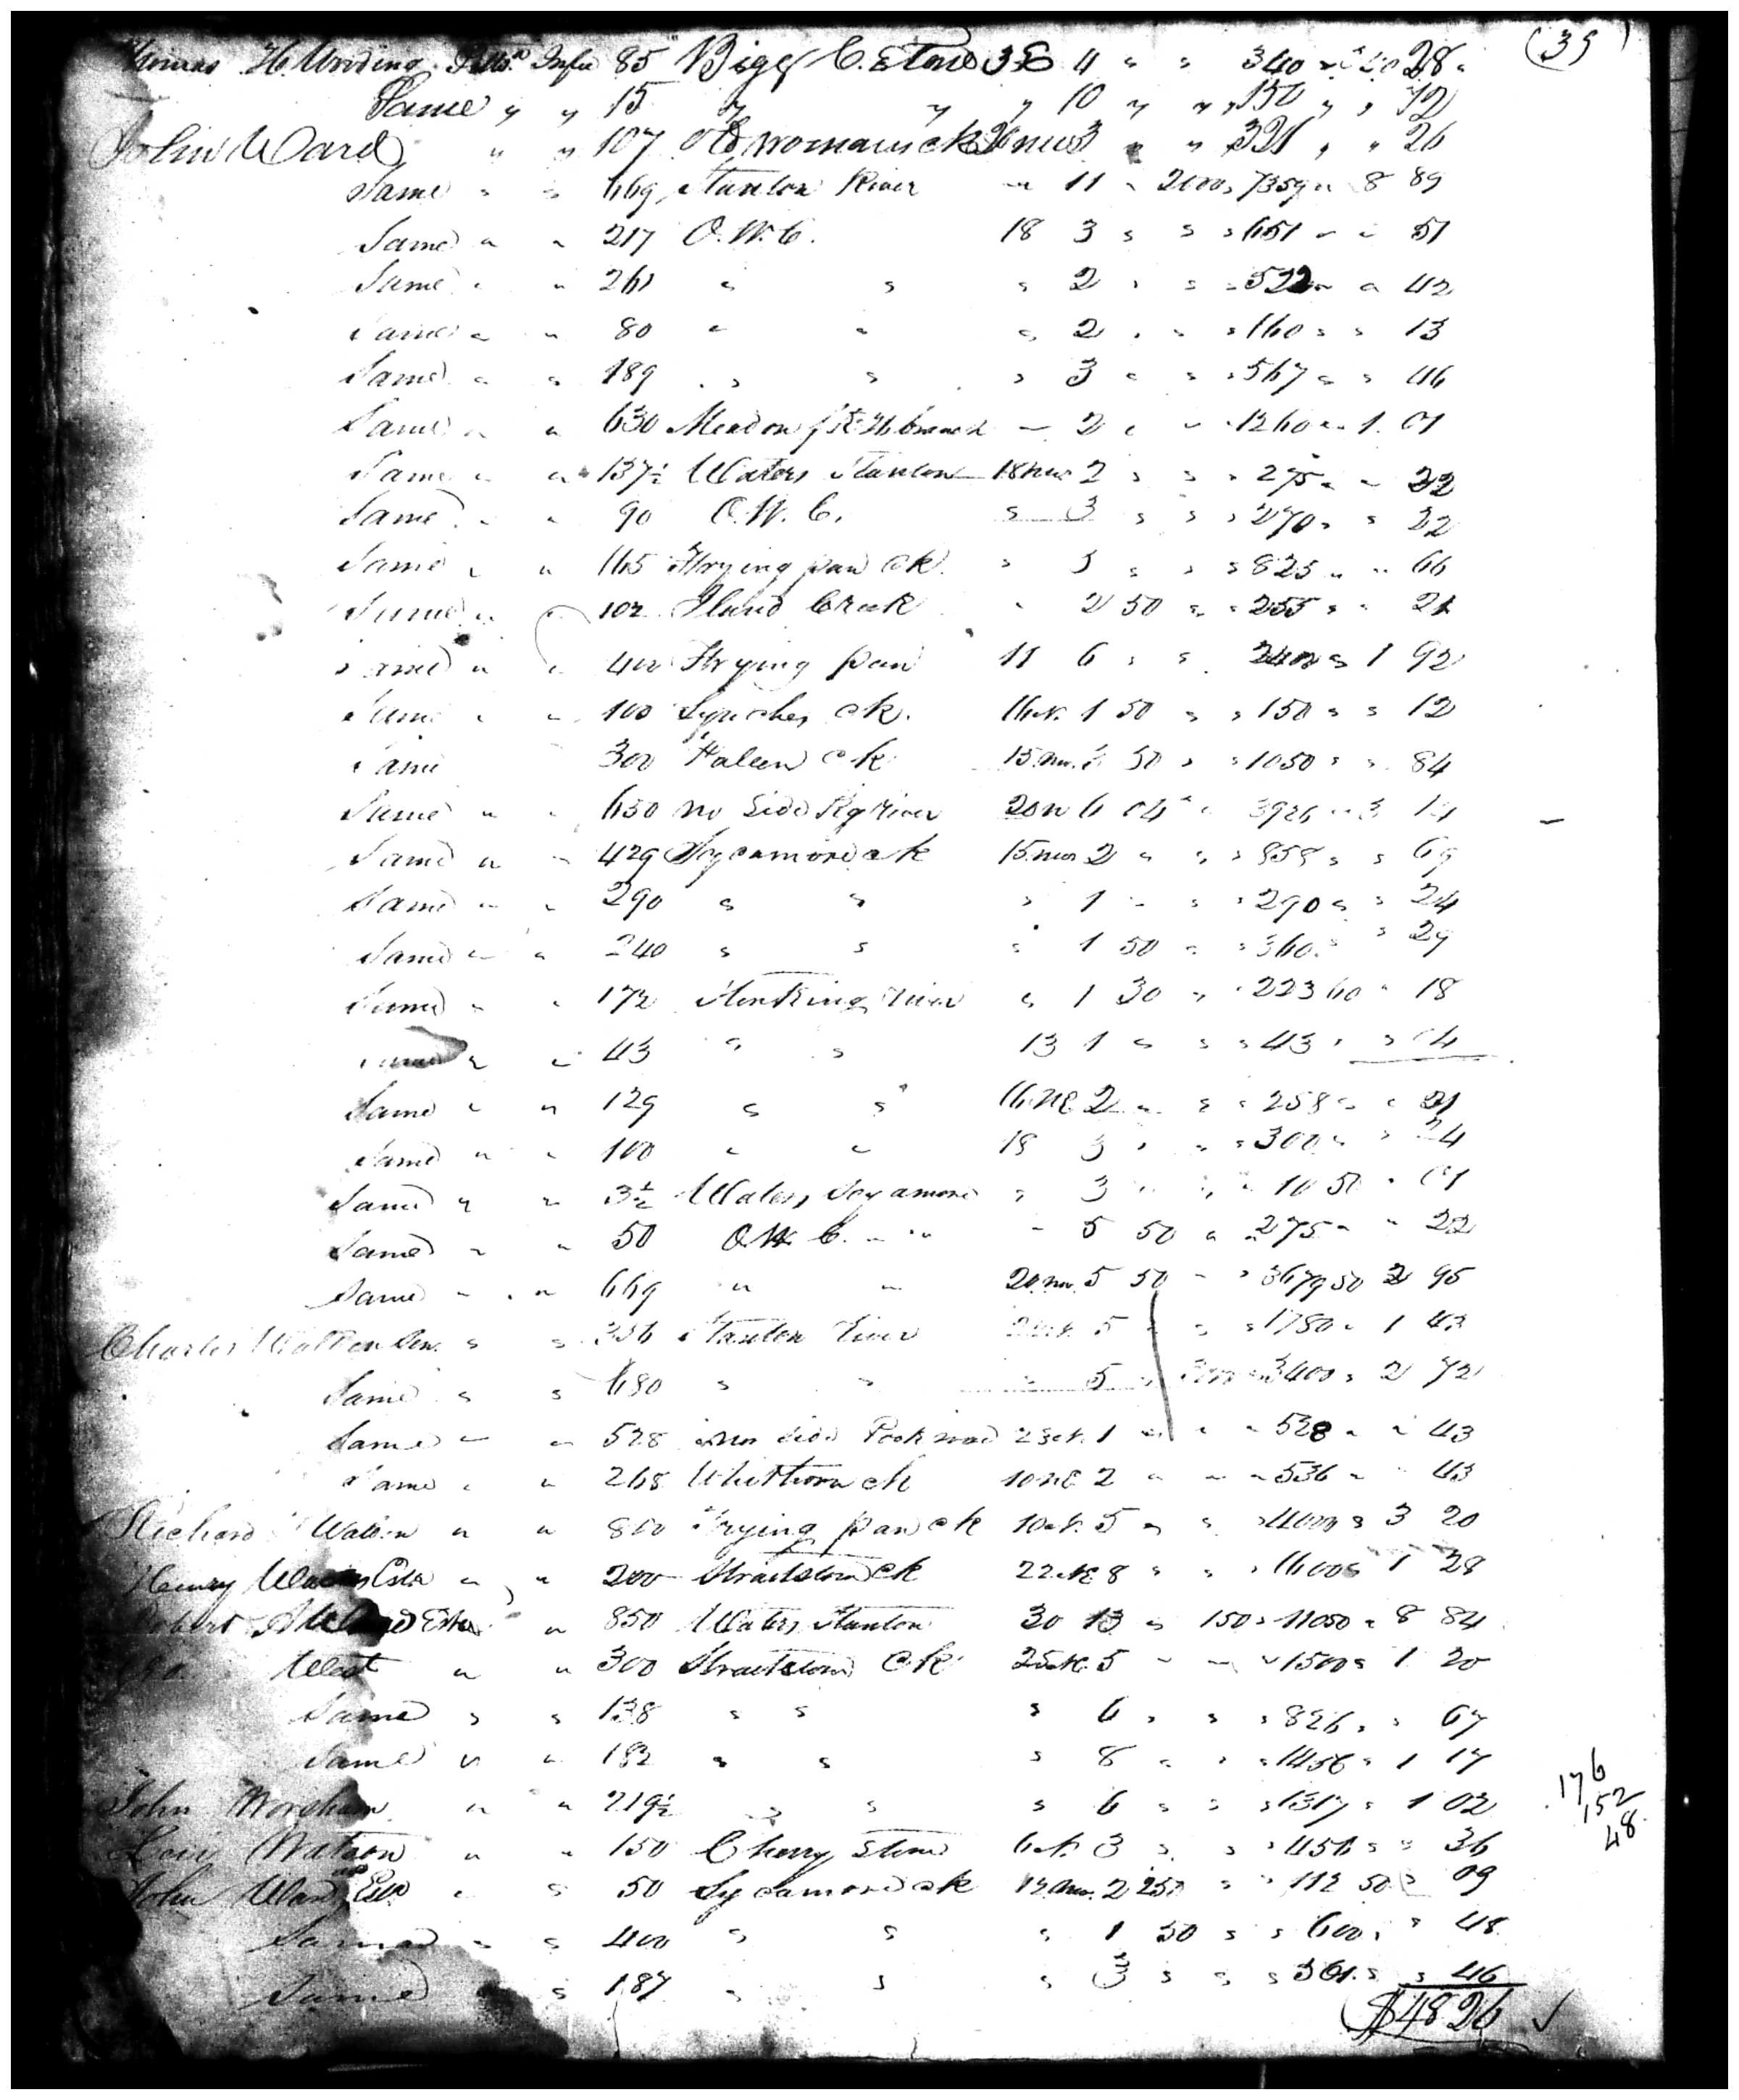 (39)
Thomas H. Wriding Pitts. Infee 85 Bigg C. Stone 3 E 4 " " 340 " " 28
Same " " 15 " " " 10 " " 150 " " 12
John Ward " " 107 Old womans ck 20 nw 3 " " 321 " " 26
Same " " 669 Stanton River " 11 " 2000 7359 " 8 89
Same " " 217 O. W. C. 18 3 " " " 651 " " 51
Same " " 261 " " " 2 " " " 522 " " 42
Same " " 80 " " " 2 " " " 160 " " 13
Same " " 189 " " " 3 " " " 567 " " 46
Same " " 630 Meadow branch " 2 " " 1260 " 1 01
Same " " 137½ Waters Stanton 18 nw 2 " " " 275 " " 22
Same " " 90 O. W. C. " 3 " " " 270 " " 22
Same " " 165 Frying pan ck " 5 " " " 825 " " 66
Same " " 102 Island Creek " 2 50 " " 255 " " 21
Same " " 400 Frying pan 11 6 " " 2400 " 1 92
Same " " 100 Lynches ck. 16 1 50 " " 150 " " 12
Same 300 ck 15 nw 3 50 " " 1050 " " 84
Same " " 650 no side Pig River 20 n 6 04 " " 3926 " 3 14
Same " " 429 Sycamore ck 15 nw 2 " " " 858 " " 69
Same " " 290 " " " 1 " " " 290 " " 24
Same " " 240 " " " 1 50 " " 360 " " 29
Same " " 172 Stinking river " 1 30 " " 223 60 " 18
Same " " 43 " " 13 1 " " " 43 " " 04
Same " " 129 " " 16 NE 2 " " " 258 " " 21
Same " " 100 " " 18 3 " " " 300 " " 24
Same " " 3½ Waters Sycamore " 3 " " " 10 50 " 01
Same " " 50 O. W. C. " " " 5 50 " " 275 " " 22
Same " " 669 " " 20 nw 5 50 " " 3679 50 2 95
Charles Walden Sen. " " 356 Stanton River 5 " " " 1780 " 1 43
Same " " 680 " " " 5 " " 3400 " 2 72
Same " " 528 side 23 1 " " " 528 " " 43
Same " " 268 Whitthorn ck 10 NE 2 " " " 536 " " 43
Richard Walden " " 800 Frying pan ck 10 5 " " " 4000 " 3 20
Henry Este " " 200 Straitstone ck 22 NE 8 " " " 1600 " 1 28
Robert Este " " 850 Waters Stanton 30 13 " 150 " 11050 " 8 84
West " " 300 Straitstone Ck 25 5 " " " 1500 " 1 20
Same " " 138 " " " 6 " " " 826 " " 67
Same " " 182 " " " 8 " " " 1456 " 1 17
John Worsham " " 219½ " " " 6 " " " 1317 " 1 02
176
152
48
Levi Watson " " 150 Cherry Stone 6 3 " " " 450 " " 36
John Ward Este " " 50 Sycamore ck 12 nw 2 250 " " 112 50 " 09
Same " " 400 " " " 1 50 " " 600 " " 48
Same " " 187 " " " 3 " " " 561 " " 46
$48 26